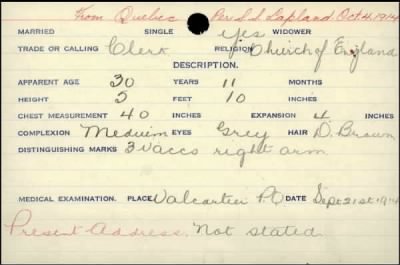 From Quebec Per S.S. Lapland Oct 4, 1914
MARRIED SINGLE yes WIDOWER
TRADE OR CALLING Clerk RELIGION Church of England
DESCRIPTION.
APPARENT AGE 30 YEARS 11 MONTHS
HEIGHT 5 FEET 10 INCHES
CHEST MEASUREMENT 40 INCHES EXPANSION 4 INCHES
COMPLEXION Meduim EYES Grey HAIR D. Brown
DISTINGUISHING MARKS 3 Vaccs right arm
MEDICAL EXAMINATION. PLACE Valcartier P.Q DATE Sept 21st 1914
Present Address. Not stated